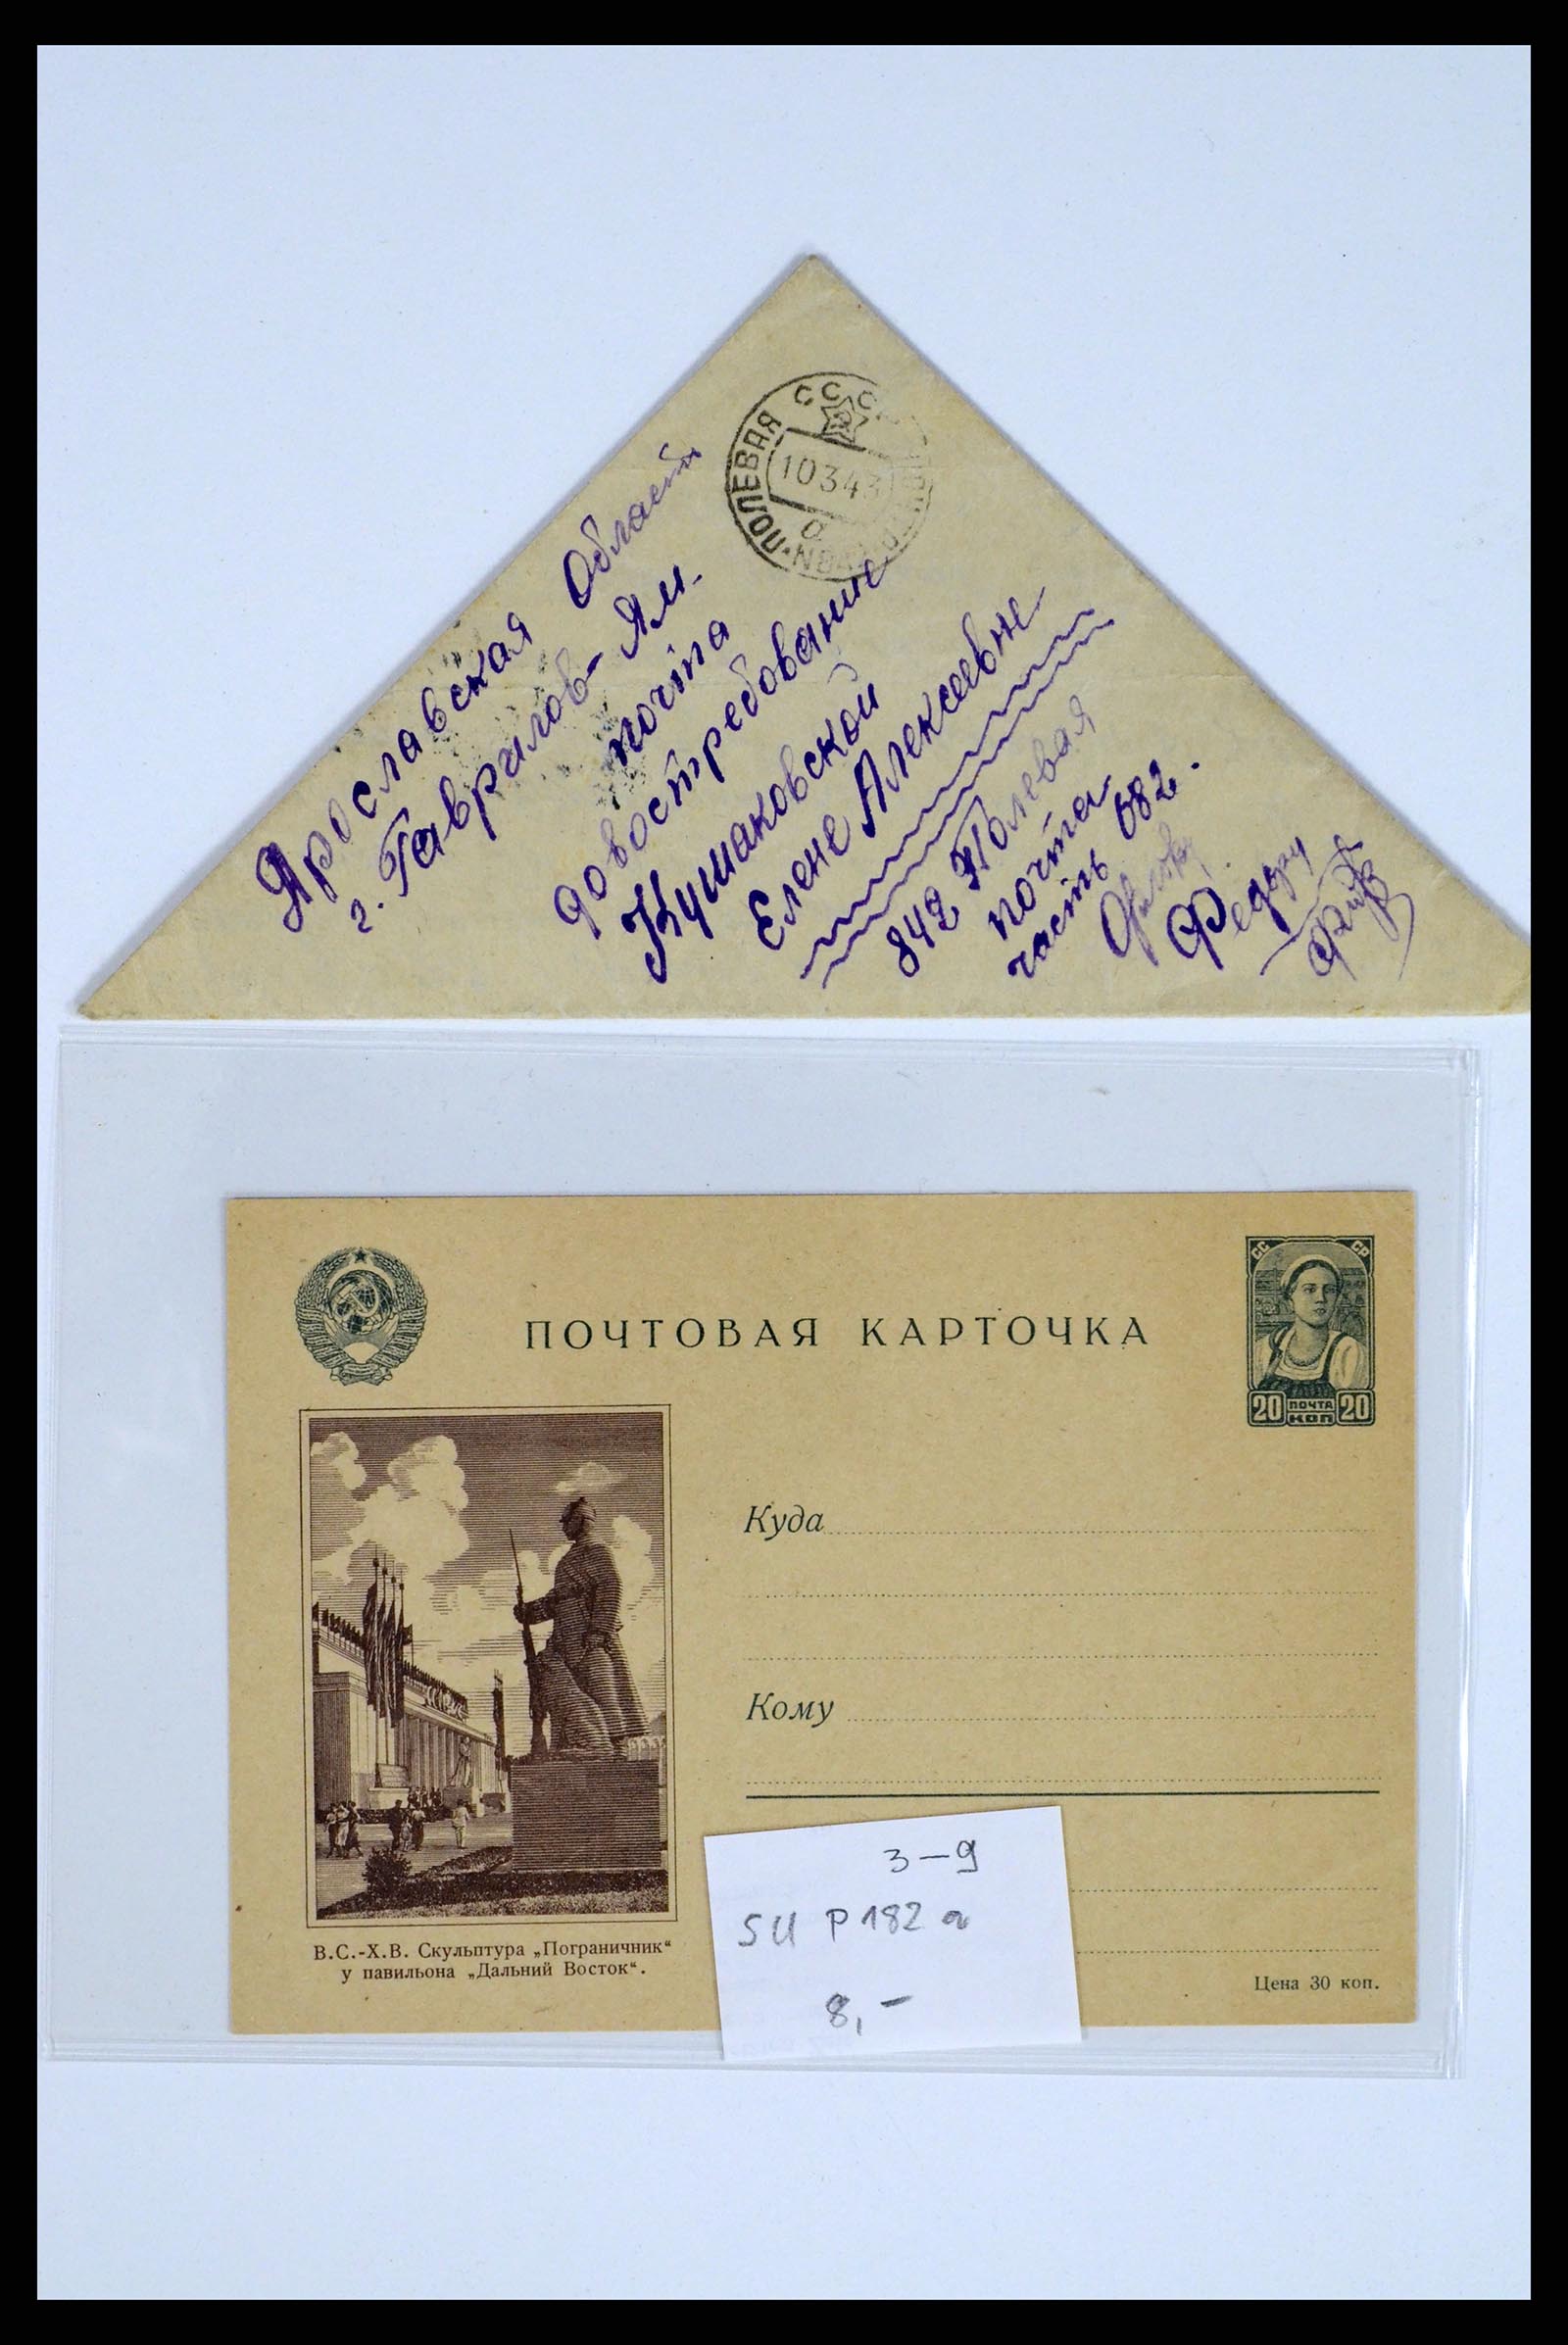 Ярославская Области
г. Гаврилов-Ям.
почта
довостребование
Кушаковской
Елене Алексеевне
842 Полевая
почта
часть 682.
Федору
ПОЛЕВАЯ
10343
а
ПОЧТОВАЯ КАРТОЧКА
СС СР
20 ПОЧТА 20
КОП
Куда
Кому
В.С.-Х.В. Скульптура „Пограничник“
у павильона „Дальний Восток“.
Цена 30 коп.
3-9
SU P 182 a
8,-